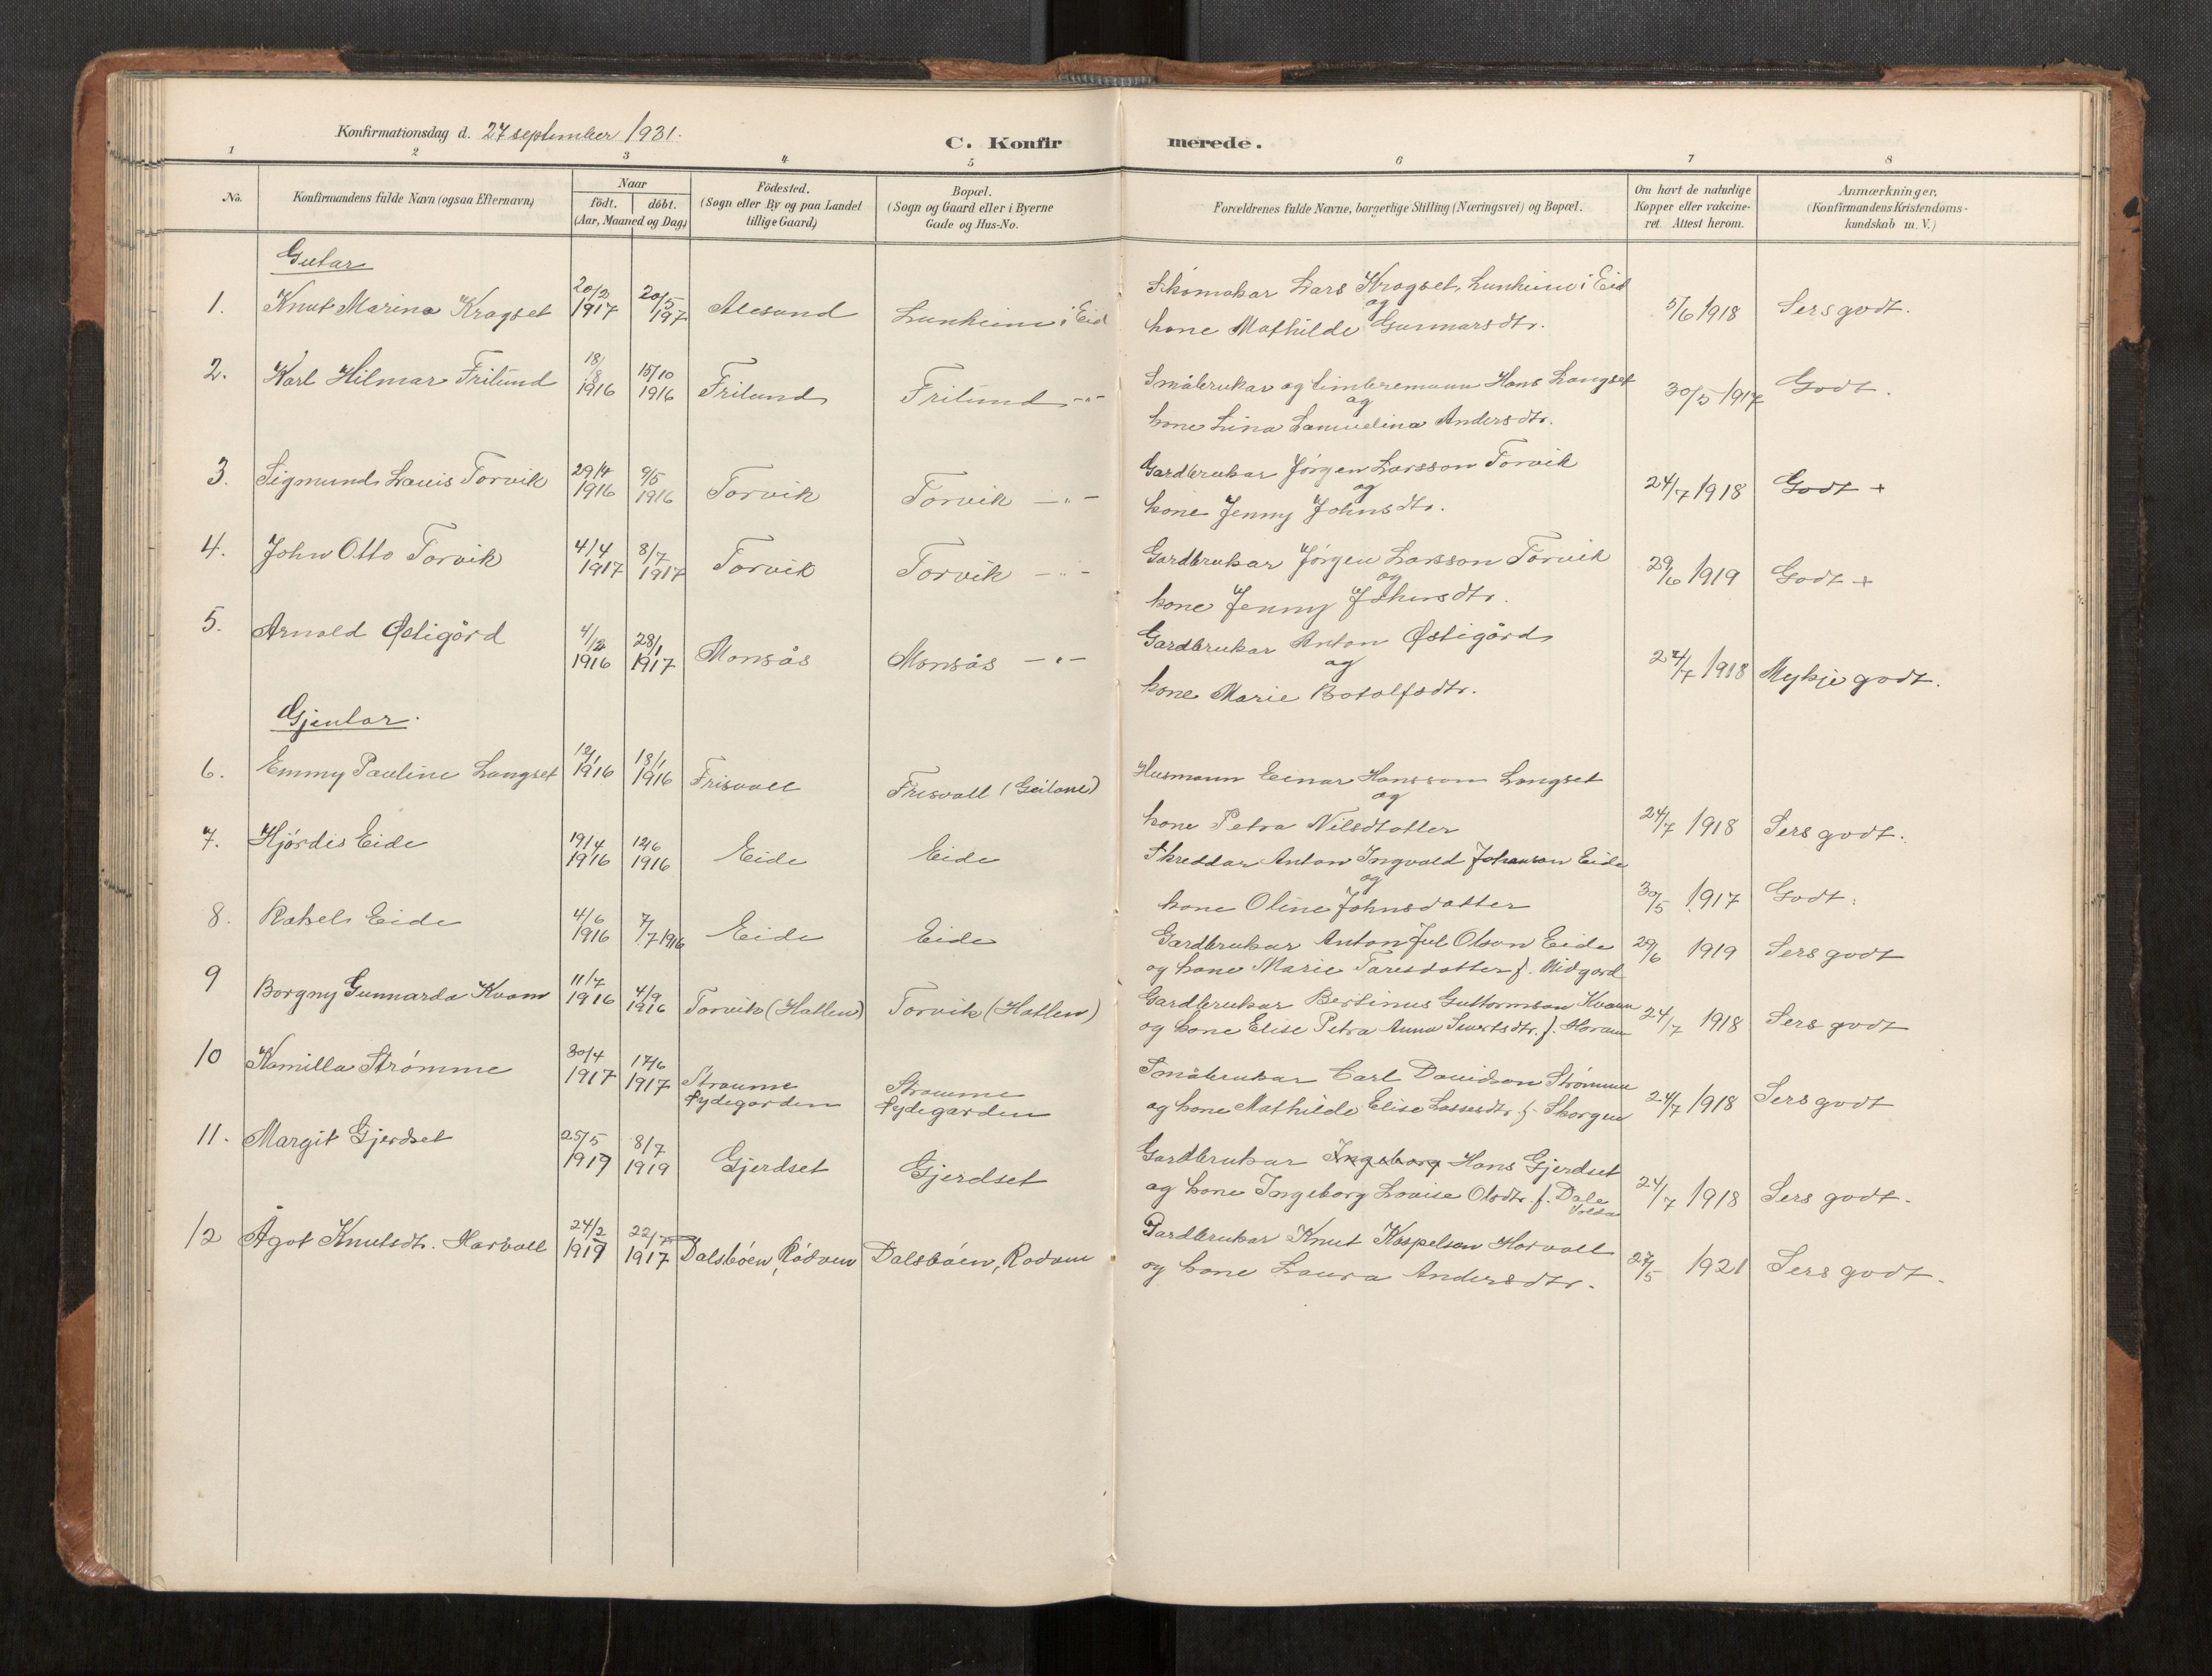 Konfirmationsdag d. 27 september 1931.
C. Konfirmerede.
1 2 3 4 5 6 7 8
No.
Konfirmandens fulde Navn (ogsaa Efternavn)
Naar
födt. döbt.
(Aar, Maaned og Dag)
Födested.
(Sogn eller By og paa Landet
tillige Gaard)
Bopæl.
(Sogn og Gaard eller i Byerne
Gade og Hus-No.
Forældrenes fulde Navne, borgerlige Stilling (Næringsvei) og Bopæl.
Om havt de naturlige
Kopper eller vakcine-
ret. Attest herom.
Anmærkninger,
(Konfirmandens Kristendoms-
kundskab m. V.)
Gutar
1. Knut Marino Kragset 20/2 1917 20/5 197 Alesund Lunheim i Eid
Skomakar Lars Kragset, Lunheim i Eid
og
kone Mathilde Gunnarsdtr.
5/6 1918 Sers godt.
2. Karl Hilmar Frilund 18/8 1916 15/10 1916 Frilund Frilund -"-
Småbrukar og timbremann Hans Langset
og
kone Lina Samuelina Andersdtr.
30/5 1917 Godt.
3. Sigmund Louis Torvik 29/4 1916 9/5 1916 Torvik Torvik -"-
Gardbrukar Jørgen Larsson Torvik
og
kone Jenny Johnsdtr.
24/7 1918 Godt +
4. John Otto Torvik 4/4 1917 8/7 1917 Torvik Torvik -"-
Gardbrukar Jørgen Larsson Torvik
og
kone Jenny Johnsdtr.
29/6 1919 Godt +
5. Arnold Østigård 4/12 1916 28/1 1917 Monsås Monsås -"-
Gardbrukar Anton Østigård
og
kone Marie Botolfsdtr.
24/7 1918 Mykje godt.
Gjentor.
6. Emmy Pauline Langset 12/1 1916 18/1 1916 Frisvoll Frisvoll (Geilane)
Husmann Einar Hansson Langset
og
kone Petra Nilsdotter
24/7 1918 Sers godt.
7. Hjørdis Eide 19/4 1916 12/6 1916 Eide Eide
Skreddar Anton Ingvald Johanson Eide
og
kone Oline Johnsdotter
30/5 1917 Godt.
8. Rakel Eide 4/6 1916 7/7 1916 Eide Eide
Gardbrukar Anton Jul Olson Eide
og kone Marie Taresdotter f. Midgard
29/6 1919 Sers godt
9 Borgny Gunnarda Kvam 11/7 1916 4/9 1916 Torvik (Hatlen) Torvik (Hatlen)
Gardbrukar Bertinus Guttormson Kvam
og kone Elise Petra Anna Sivertsdtr. f. Horam
24/7 1918 Sers godt
10 Kamilla Strømme 30/4 1917 17/6 1917 Straume Sydegarden Straume Sydegarden
Småbrukar Carl Davidson Strømme
og kone Mathilde Elise Lassesdtr. f. Skorgen
24/7 1918 Sers godt
11. Margit Gjerdset 25/5 1917 8/7 1919 Gjerdset Gjerdset
Gardbrukar Ingeborg Hans Gjerdset
og kone Ingeborg Lovise Olsdtr. f. Dale
Volda
24/7 1918 Sers godt.
12 Ågot Knutsdtr. Harvoll 24/2 1917 22/7 1917 Dalsbøen, Rødven Dalsbøen, Rødven
Gardbrukar Knut Kaspelson Horvoll
og kone Laura Andersdtr.
27/5 1921 Sers godt.